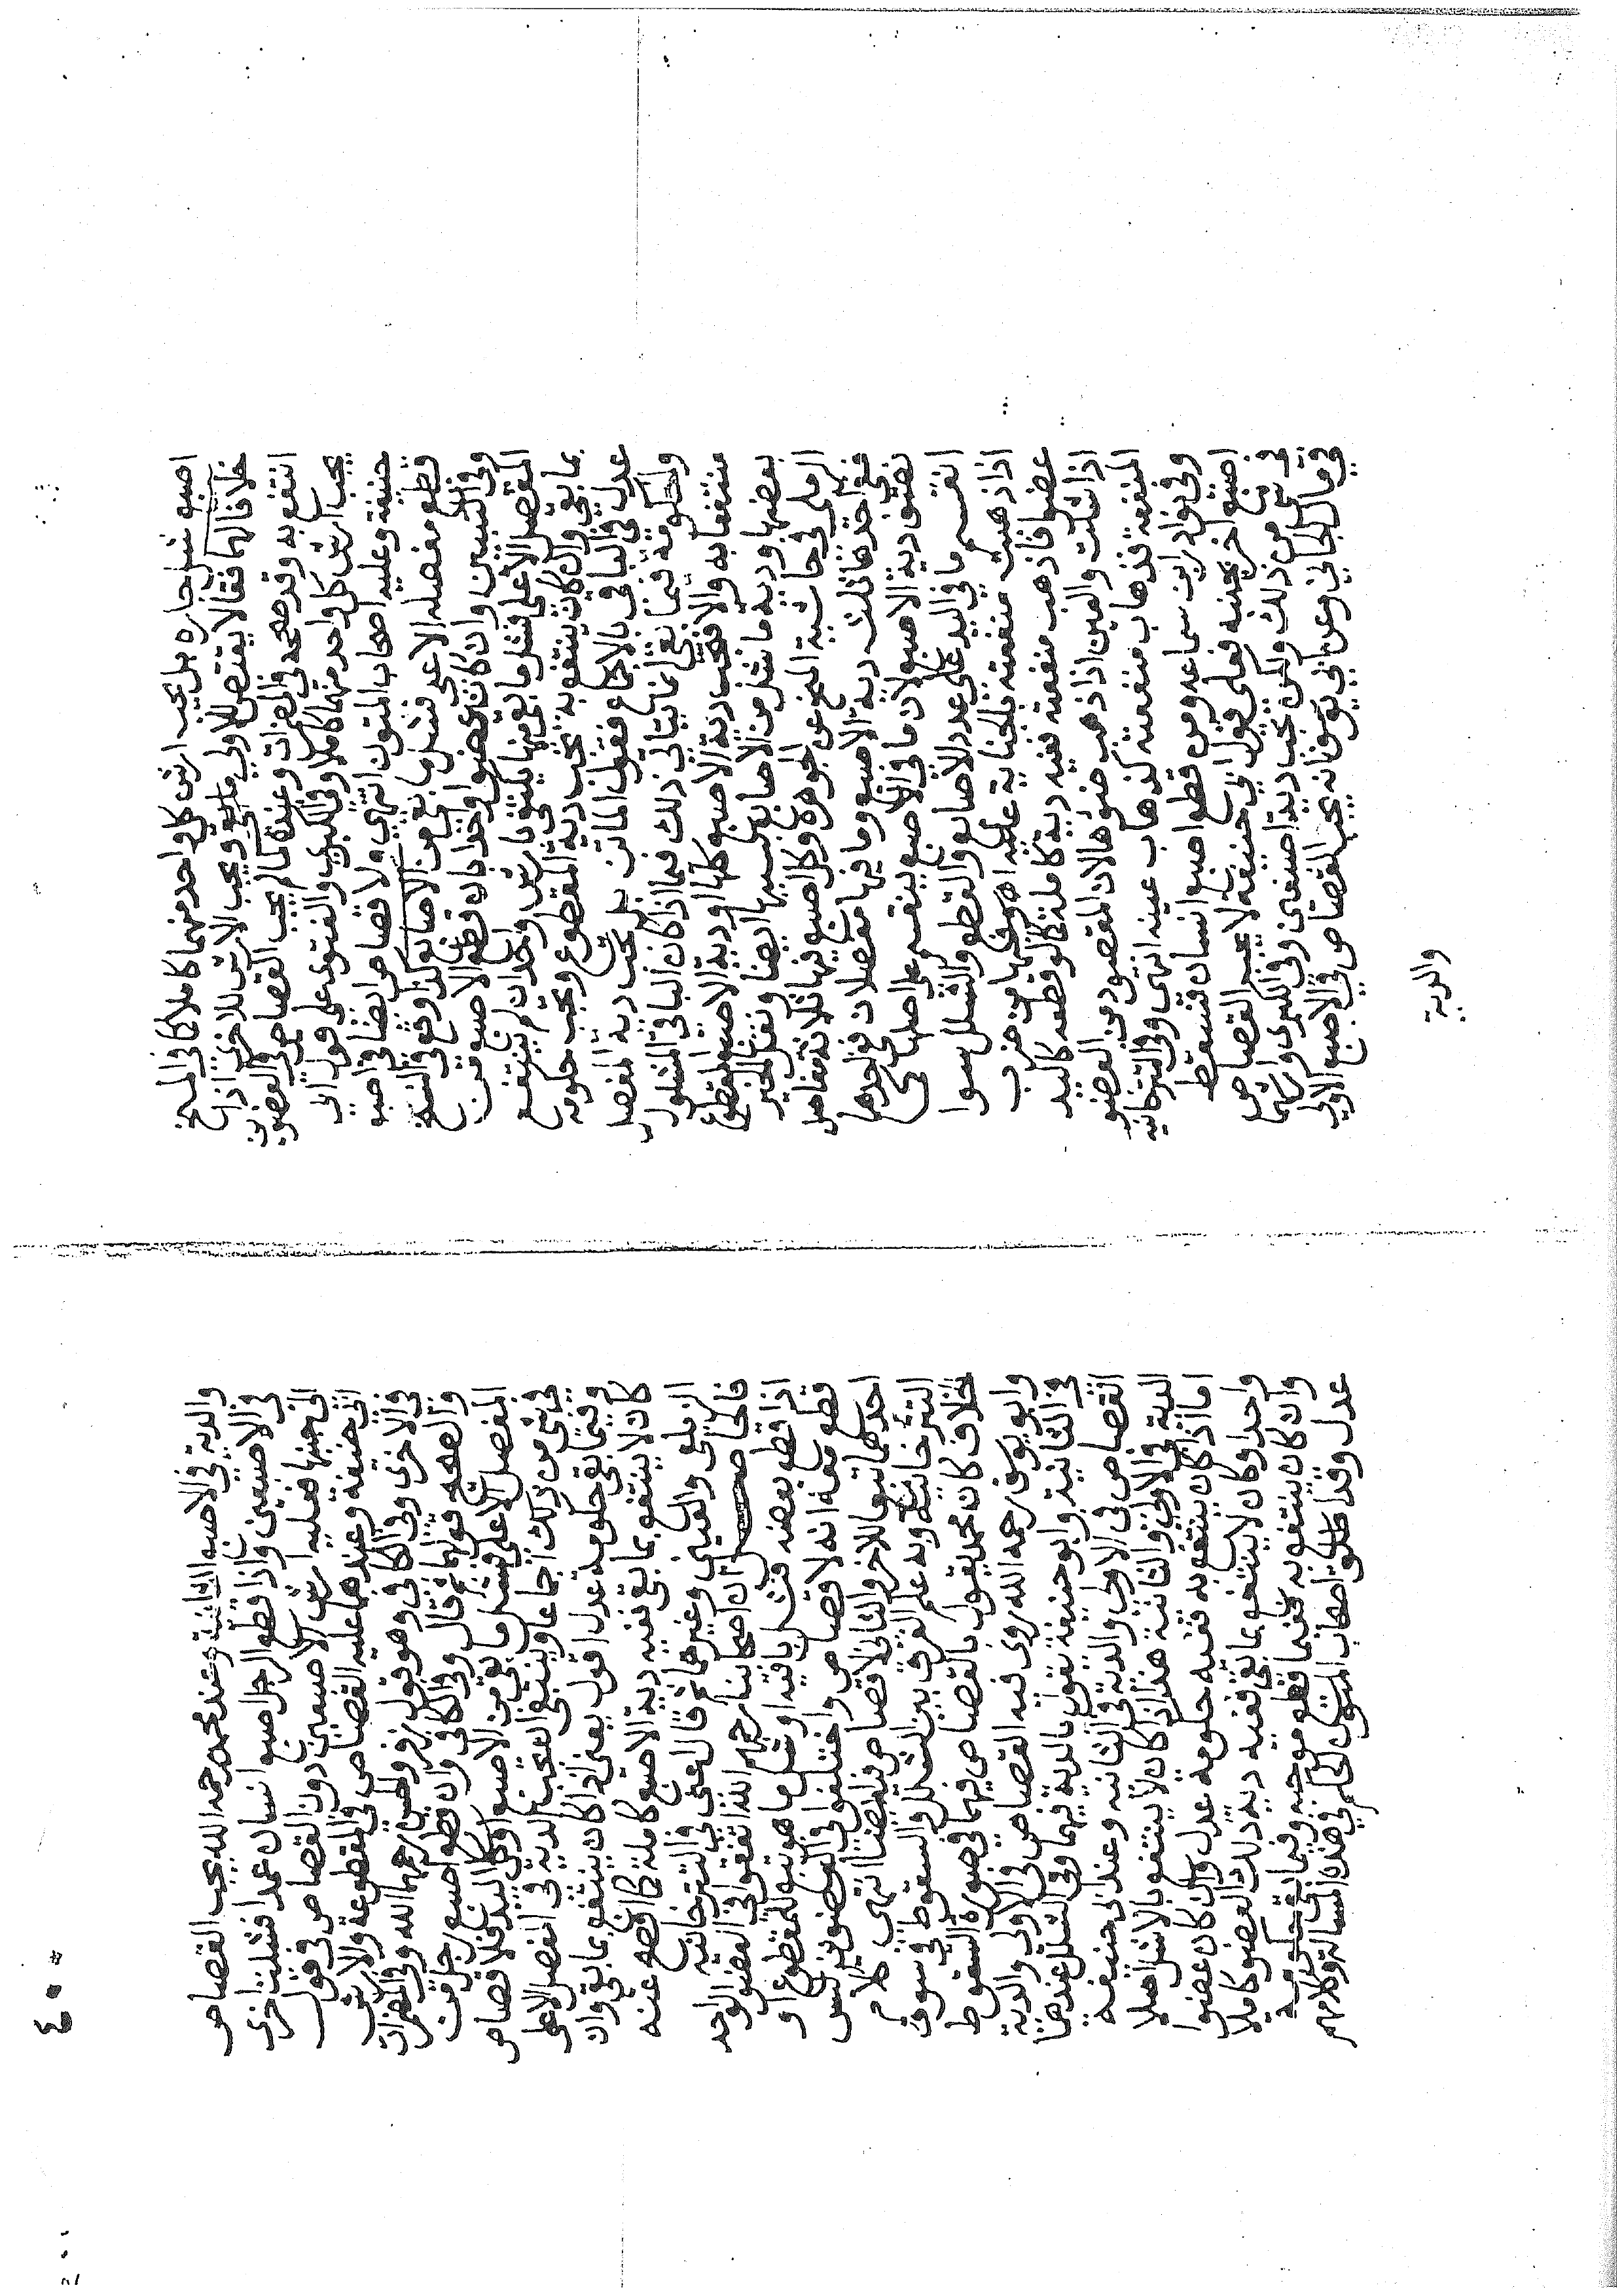 اصبع شل جاره هل يجب ارش كل واحد منهما كاملا كما في المخ
خلافا لهما فقالا يقتص للاولي ويجب الارش للاخرى اذا
انتفع به وقد صححه في المضمرات وعنده لما لم يجب القصاص في العضوين
يجب ارش كل واحد منهما كاملا وفي الكبرى والفتوى على قول ابي
حنيفة وعليه اصحاب المتون انتهى ولا قصاص ايضا في اصبع
قطع مفصله الاعلى فشل ما بقي من الاصابع كذا وقع في النسخ
وفي التبيين وان كان عضوا واحدا بان قطع الاصبع من
المفصل الاعلى فشل ما بقي منها يكتفى بارش واحد ان لم ينتفع
بما بقي وان كان ينتفع به تجب دية المقطوع وتجب حكومة
عدل في الباقي بالاجماع فقول الماتن بل تجب دية المفصل
والحكومة فيما بقي انما يتاتى ذلك فيما اذا كان الباقي المشلول
منتفعا به والا فتجب دية الاصبع كلها او دية الاصبع لقطع
بعضها ودية ما شل من الاصابع بسببها ايضا ونقل الخير
الرملي في حاشية المنح عن الجوهرة وكل اصبع فيها ثلاثة مفاصل
ففي احدها ثلث دية الاصبع وما فيها مفصلان ففي احدهما
نصف دية الاصبع لان ما في الاصبع ينقسم على اصلها كما
انقسم ما في اليد على عدد الاصابع والقطع والشلل سوا
اذا ذهبت منفعته بالجناية عليه اه وفيها من ضرب
عضوا فاذهب منفعته ففيه دية كاملة كما لو قطعه كاليد
اذا شلت والعين اذا ذهب ضوءها لان المقصود من العضو
المنفعة فذهاب منفعته كذهاب عينه انتهى وفي التترخانية
وفي نوادر ابن سماعة ومن قطع اصبع انسان فسقطت
اصبع اخرى بجنبه فعلى قول ابي حنيفة لا يجب القصاص
في شيء من ذلك ولكن يجب دية اصبعين وفي الكبرى وارشهما
في مال الجاني وعن ابي يوسف انه يجب القصاص في الاصبع الاولى
والدية
٤٠٠
والدية في الاصبع الثانية وعند محمد رحمه الله يجب القصاص
في الاصبعين واذا قطع الرجل اصبع انسان عمدا فشلت اخرى
الى جنبها فعليه ارش الاصبعين دون القصاص في قول
ابي حنيفة وعندهما عليه القصاص في المقطوعة والارش
في الاخرى وفي الكافي وهو قول زفر والحسن رحمهما الله وفي المضمرات
والصحيح قولهما ثم قال وفي الكافي وان قطع اصبع رجل من
المفصل الاعلى فشل ما بقي من الاصبع او كل اليد فلا قصاص
في شيء من ذلك اجماعا وينبغي ان تجب الدية في المفصل الاعلى
وفيما بقي حكومة عدل اقول يعني اذا كان ينتفع بما بقي وان
كان لا ينتفع بما بقي ففيه دية الاصبع كاملة كما افصح عنه
الزيلعي والعيني وغيرهما ثم قال اعني في التترخانية
فالحاصل ان اصحابنا رحمهم الله اتفقوا في العضو الواحد
اذا قطع بعضه فشل باقيه او شل ما هو تبع للمقطوع او
قطع معه انه لا قصاص واختلفوا في العضوين ليس
احدهما تبعا للاخر والثاني لا قصاص فيه ايضا انتهى كلام
التترخانية وبه علم الفرق بين الشلل والسقوط في سوق
الخلاف كان محمد يقول بالقصاص فيهما في صورة السقوط
وابو يوسف رحمه الله روى فيه القصاص في الاولى والدية
في الثانية وابو حنيفة يقول بالدية فيهما وفي الشلل عندهما
القصاص في الاولى والدية في الثانية وعند ابي حنيفة
الدية في الاولى والثانية هذا اذا كان لا ينتفع بالاشل اصلا
اما اذا كان ينتفع به ففيه حكومة عدل وان كان عضوا
واحدا وكان لا ينتفع بما بقي ففيه دية ذلك العضو كاملا
وان كان ينتفع به ففيما قطع موجبه وفيما بقي حكومة
عدل وقد اطلق اصحاب المتون الحكم في هذه المسالة وكلامهم